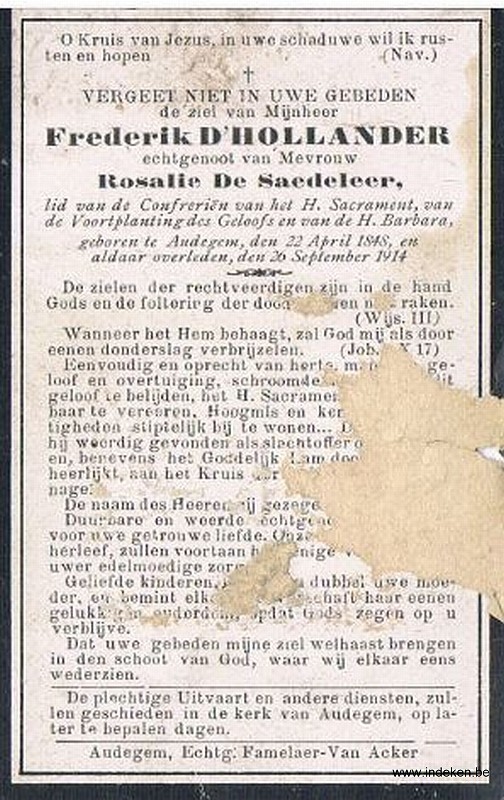 O Kruis van Jezus, in uwe schaduwe wil ik rus-
ten en hopen (Nav.)
VERGEET NIET IN UWE GEBEDEN
de ziel van Mijnheer
Frederik D'HOLLANDER
echtgenoot van Mevrouw
Rosalie De Saedeleer,
lid van de Confreriën van het H. Sacrament, van
de Voortplanting des Geloofs en van de H. Barbara,
geboren te Audegem, den 22 April 1848, en
aldaar overleden, den 26 September 1914
De zielen der rechtveerdigen zijn in de hand
Gods en de foltering der raken.
(Wijs. III)
Wanneer het Hem behaagt, zal God mij als door
eenen donderslag verbrijzelen. (Job. X 17)
Eenvoudig en oprecht van herte, ge-
loof en overtuiging,
geloof te belijden, het H.
baar te vereeren. Hoogmis en
tigheden stiptelijk bij te wonen...
hij weerdig gevonden als slachtoffer
en, benevens het Goddelijk Lam
heerlijkt, aan het Kruis
De naam des Heeren zij
Duurbare en weerde
voor uwe getrouwe liefde.
herleef, zullen voortaan
uwer edelmoedige
Geliefde kinderen, dubbel uwe moe-
der, en bemint haar eenen
opdat Gods zegen op u
verblijve.
Dat uwe gebeden mijne ziel welhaast brengen
in den schoot van God, waar wij elkaar eens
wederzien.
De plechtige Uitvaart en andere diensten, zul-
len geschieden in de kerk van Audegem, op la-
ter te bepalen dagen.
Audegem, Echtg. Famelaer-Van Acker
www.indeken.be